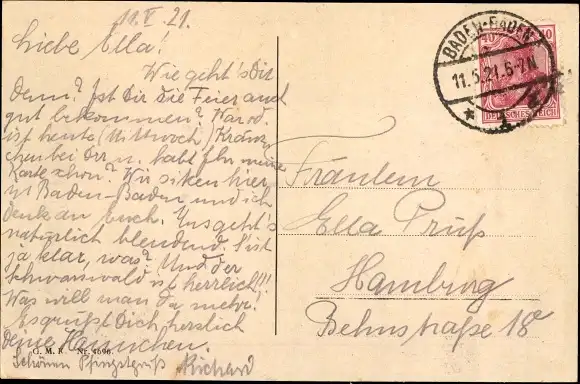 11.V.21.
Liebe Ella!
Wie geht's Dir
denn? Ist Dir die Feier auch
gut bekommen? War od.
ist heute (Mittwoch) Kränz-
chen bei Orr u. habt Ihr meine
Karte schon? Wir sitzen hier
in Baden-Baden und ich
denke an Euch. Uns geht's
natürlich blendend. S'ist
ja klar, was? Und der
Schwarzwald ist herrlich!!!
Was will man da mehr!
Es grüßt Dich herzlich
Deine
Schönen Pfingstgruß Richard
G. M. K. Nr. 4696.
BADEN-BADEN
11.5.21.6-7N.
* 1 *
10
10
DEUTSCHES REICH
Fräulein
Ella Prüß
Hamburg
Behnstraße 18